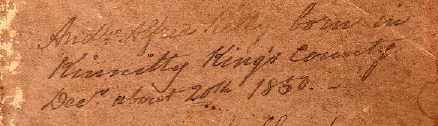 Andw. Alfred Kelly born in
Kinnitty King's County
Decr. about 20th 1850. -